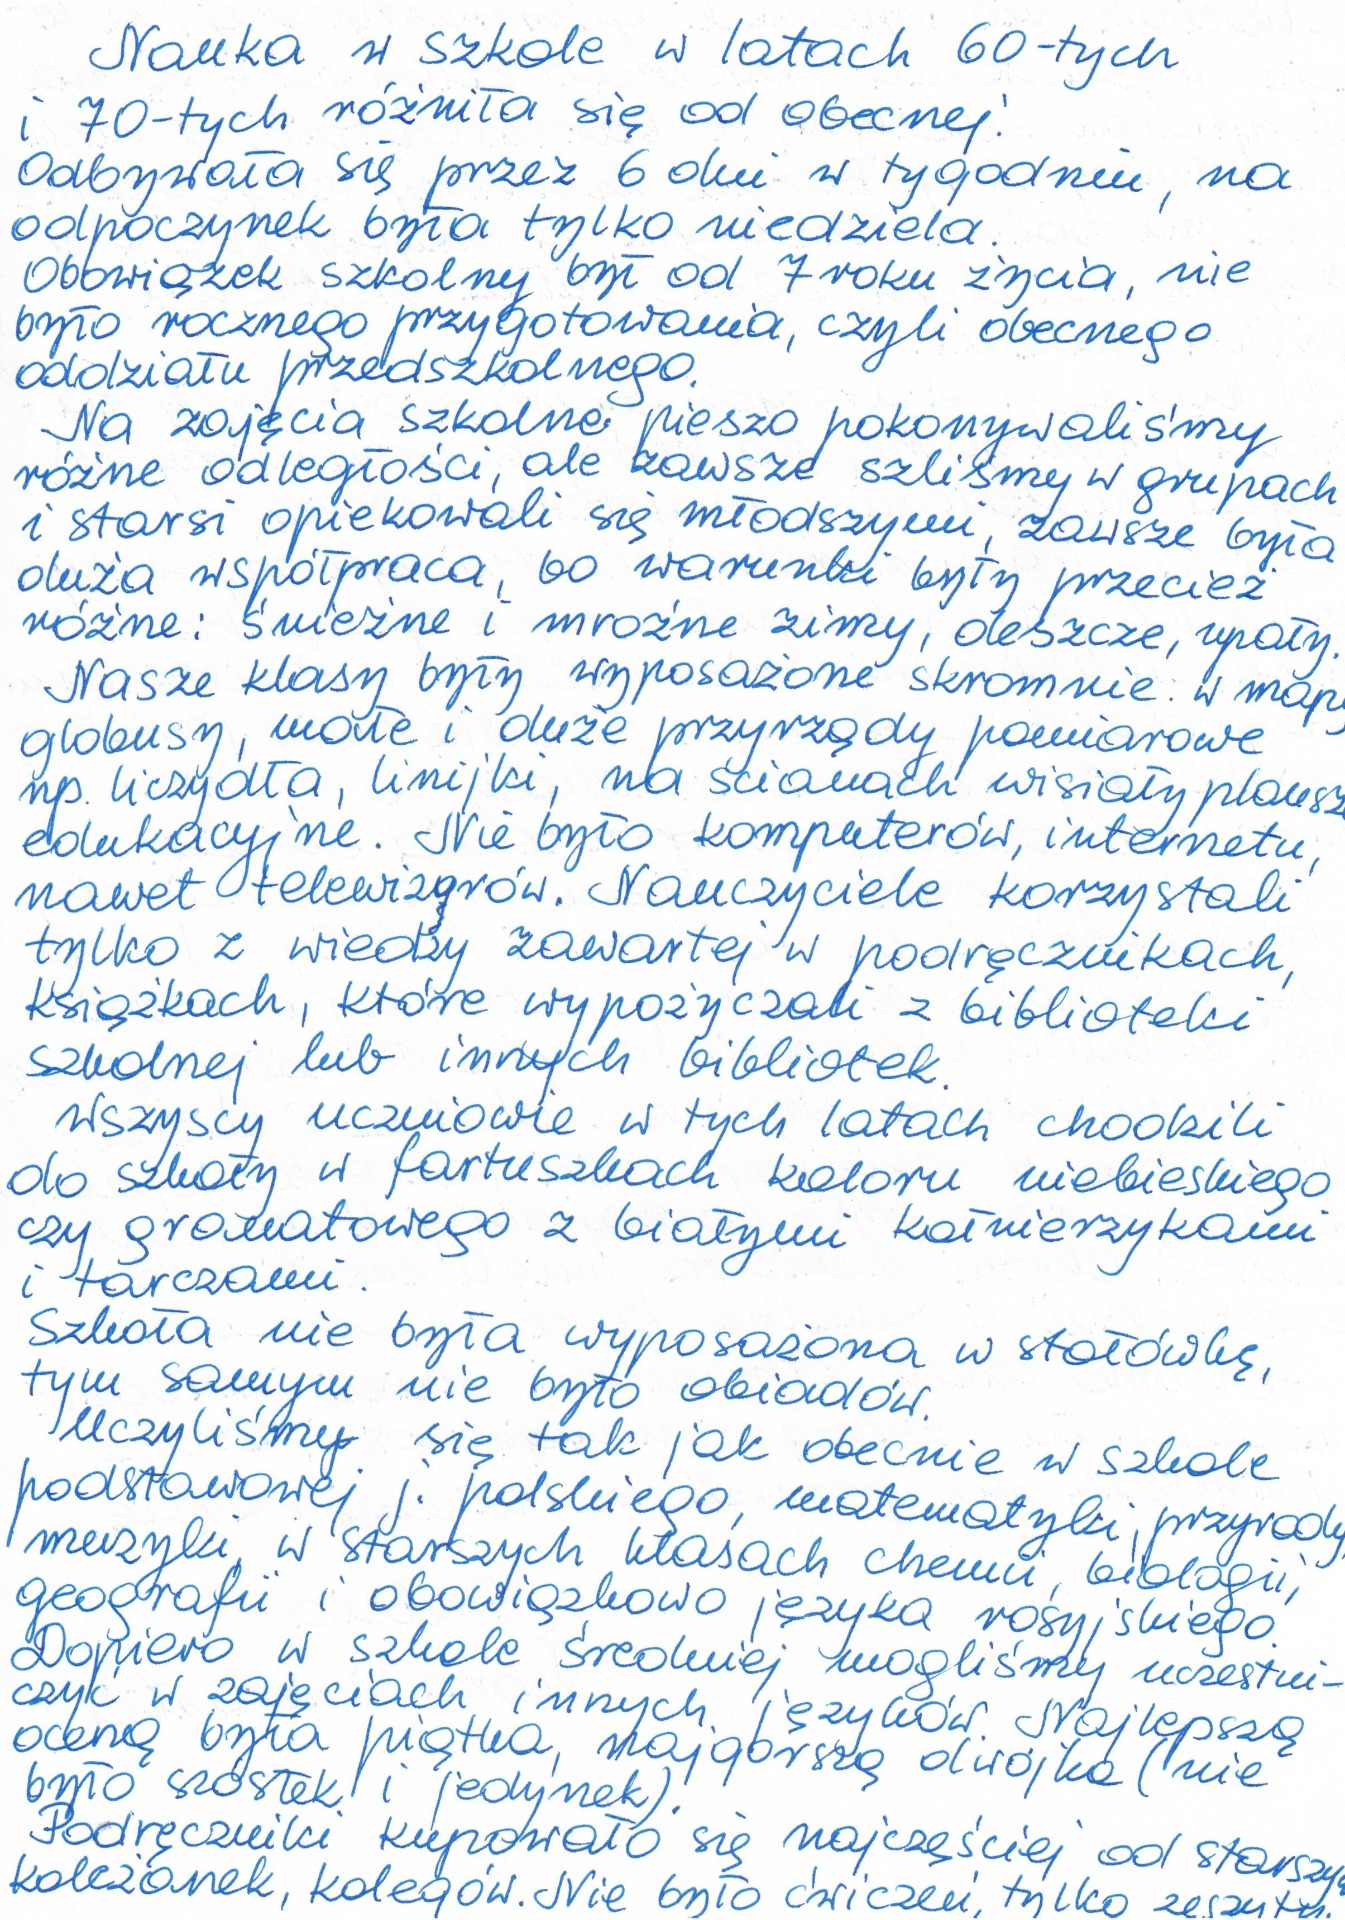 Nauka w szkole w latach 60-tych
i 70-tych różniła się od obecnej.
Odbywała się przez 6 dni w tygodniu, na
odpoczynek była tylko niedziela.
Obowiązek szkolny był od 7 roku życia, nie
było rocznego przygotowania, czyli obecnego
oddziału przedszkolnego.
Na zajęcia szkolne pieszo pokonywaliśmy
różne odległości, ale zawsze szliśmy w grupach
i starsi opiekowali się młodszymi, zawsze była
duża współpraca, bo warunki były przecież
różne: śnieżne i mroźne zimy, deszcze, upały.
Nasze klasy były wyposażone skromnie: w mapy
globusy, małe i duże przyrządy pomiarowe
np. liczydła, linijki, na ścianach wisiały plansz
edukacyjne. Nie było komputerów, internetu,
nawet telewizorów. Nauczyciele korzystali
tylko z wiedzy zawartej w podręcznikach,
książkach, które wypożyczali z biblioteki
szkolnej lub innych bibliotek.
Wszyscy uczniowie w tych latach chodzili
do szkoły w fartuszkach koloru niebieskiego
czy granatowego z białymi kołnierzykami
i tarczami.
Szkoła nie była wyposażona w stołówkę,
tym samym nie było obiadów.
Uczyliśmy się tak jak obecnie w szkole
podstawowej j. polskiego, matematyki, przyrody,
muzyki, w starszych klasach chemii, biologii,
geografii i obowiązkowo języka rosyjskiego.
Dopiero w szkole średniej mogliśmy uczestni-
czyć w zajęciach innych języków. Najlepszą
oceną była piątka, najgorszą dwójka (nie
było szóstek i jedynek).
Podręczniki kupowało się najczęściej od starszy
koleżanek, kolegów. Nie było ćwiczeń, tylko zeszyty.